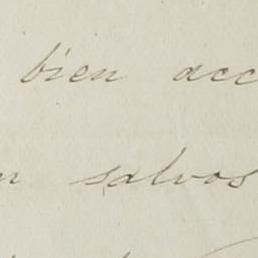 bien acc
n salvos